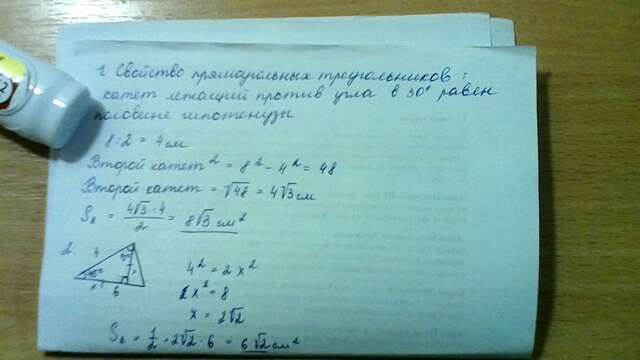 1. Свойство прямоугольных треугольников:
катет лежащий против угла в 30° равен
половине гипотенузы
8:2 = 4см
Второй катет² = 8² - 4² = 48
Второй катет = √48 = 4√3 см
S = 4√3·4/2 = 8√3 см²
2.
4
45°
x
6
4² = 2x²
x² = 8
x = 2√2
S = 1/2 · 2√2 · 6 = 6√2 см²